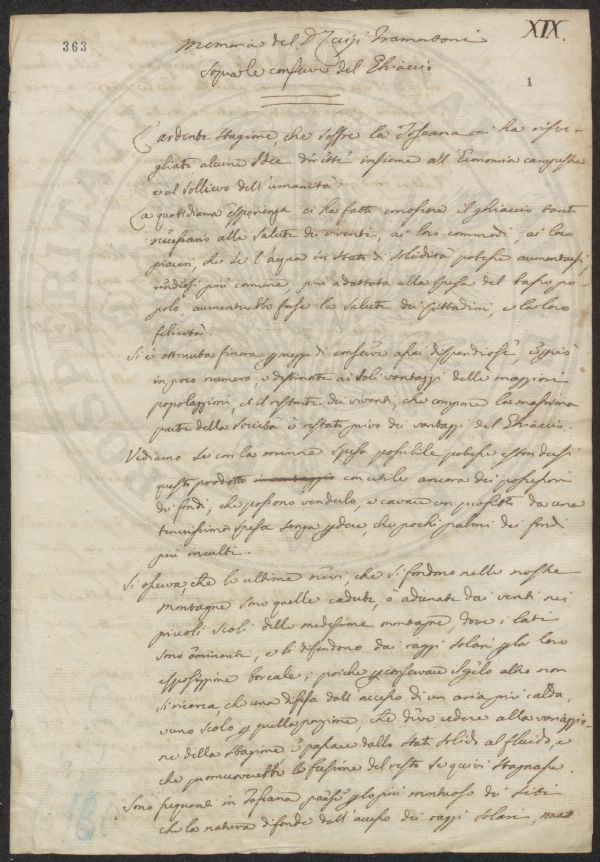 363
XIX.
1
Memoria del Dr Luigi Tramontani
Sopra le conserve del Ghiaccio
L'ardente stagione, che soffre la Toscana mi ha risve-
gliate alcune Idee dirette insieme all'Economia campestre
e al sollievo dell'umanità.
La quotidiana esperienza ci ha fatto conoscere il ghiaccio tanto
necessario alla salute dei viventi, ai loro commodi, ai loro
piaceri, che se l'acqua in stato di solidità potesse aumentarsi,
rendersi più comune, più adattata alla spesa del basso po-
polo, aumenterebbe forse la salute dei Cittadini, e la loro
felicità.
Si è ottenuta finora p mezzo di conserve assai dispendiose,
in poco numero, e destinate ai soli vantaggi delle maggiori
popolazioni, ed il restante dei viventi, che compone la massima
parte della Società è restato privo dei vantaggi del Ghiaccio.
Vediamo se con la minore spesa possibile potesse estendersi
questo prodotto con utile ancora dei possessori
dei fondi, che possono venderlo, e cavare un profitto da una
tenuissima spesa senza perdere, che pochi palmi dei fondi
più inculti.
Si osserva, che le ultime nevi, che si fondono nelle nostre
montagne sono quelle cadute, o adunate dai venti nei
piccoli scoli delle medesime montagne, dove i lati
sono eminenti, e le difendono dai raggi solari p la loro
esposizione boreale; poiche p conservare il gelo altro non
si ricerca, che una difesa dall'accesso di un aria più calda,
e uno scolo p quella porzione, che deve cedere alla variazio-
ne della stagione e passare dallo stato solido al fluido, e
che promuoverebbe la fusione del resto se quivi stagnasse.
Sono frequenti in Toscana p lo più montuoso dei siti
che la natura difende dall'accesso dei raggi solari, ma